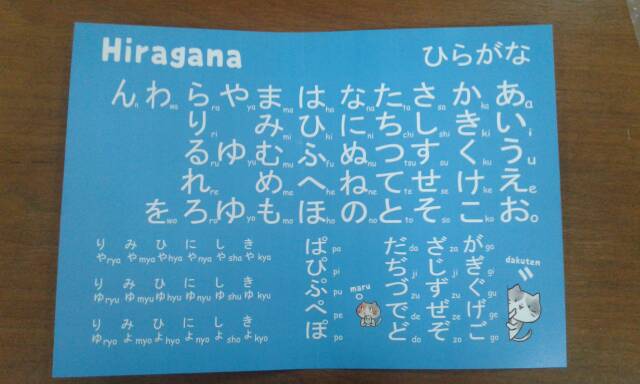 Hiragana
ひらがな
ん n わ wa ら ra や ya ま ma は ha な na た ta さ sa か ka あ a
り ri み mi ひ hi に ni ち chi し shi き ki い i
る ru ゆ yu む mu ふ fu ぬ nu つ tsu す su く ku う u
れ re め me へ he ね ne て te せ se け ke え e
を wo ろ ro ゆ も mo ほ ho の no と to そ so こ ko お o
りや rya みや mya ひや hya にや nya しや sha きや kya
りゆ ryu みゆ myu ひゆ hyu にゆ nyu しゆ shu きゆ kyu
りよ ryo みよ myo ひよ hyo によ nyo しよ sho きよ kyo
ぱ pa
ぴ pi
ぷ pu
ぺ pe
ぽ po
maru
だ da
ぢ ji
づ zu
で de
ど do
ざ za
じ ji
ず zu
ぜ ze
ぞ zo
が ga
ぎ gi
ぐ gu
げ ge
ご go
dakuten